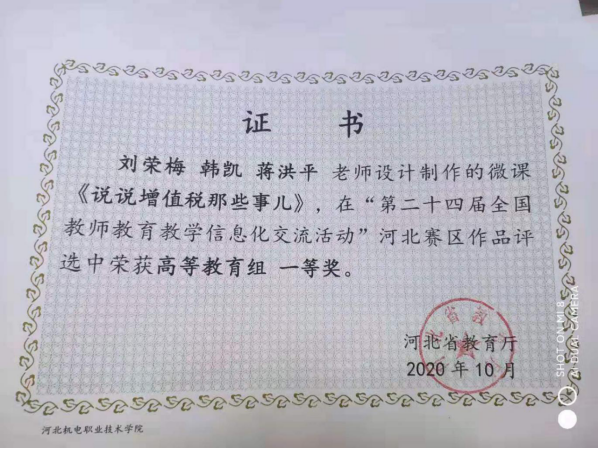 证 书
刘荣梅 韩凯 蒋洪平 老师设计制作的微课
《说说增值税那些事儿》，在“第二十四届全国
教师教育教学信息化交流活动”河北赛区作品评
选中荣获高等教育组 一等奖。
河北省教育厅
2020 年 10 月
河北机电职业技术学院
SHOT ON MI 8
AI DUAL CAMERA